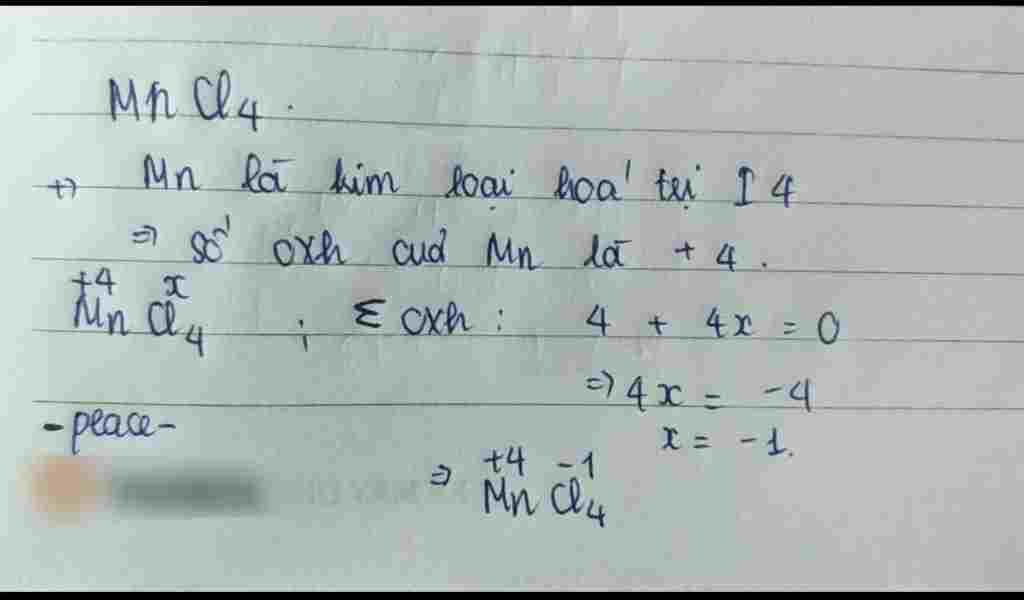 MnCl4.
+) Mn là kim loại hoá trị I 4
=> số oxh của Mn là + 4.
+4 x
MnCl4 ; Σ oxh : 4 + 4x = 0
=> 4x = -4
-peace-
x = -1.
+4 -1
=> MnCl4